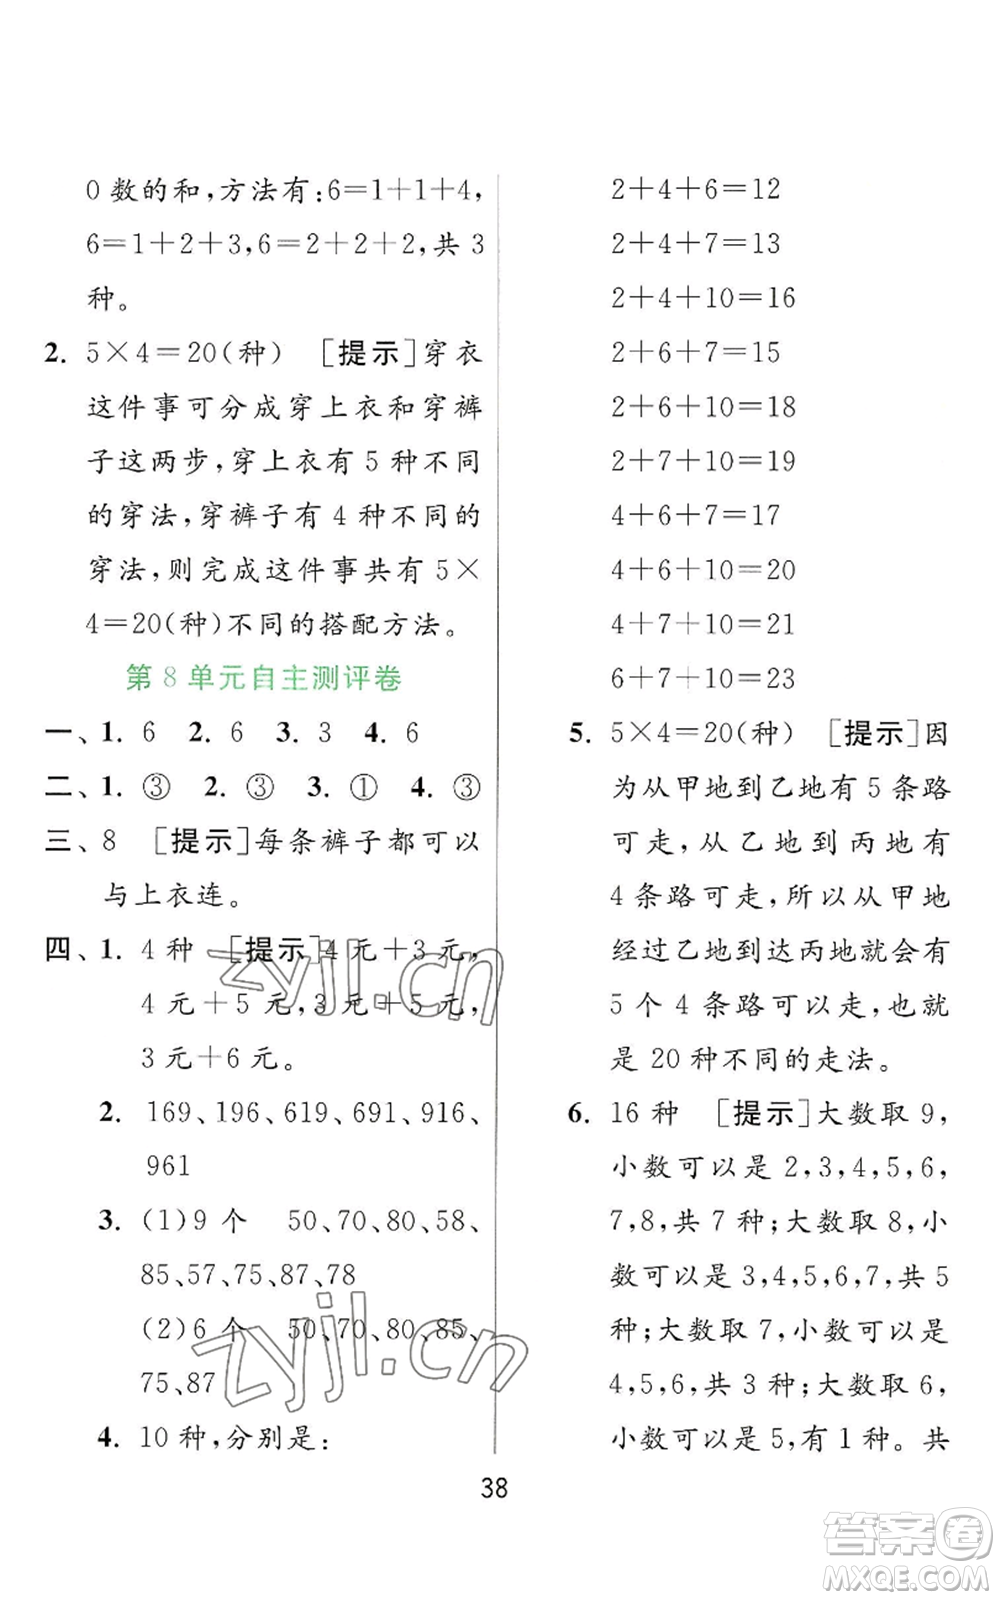 0 数的和,方法有:6=1+1+4,
6=1+2+3,6=2+2+2,共 3
种。
2. 5×4=20(种) [提示]穿衣
这件事可分成穿上衣和穿裤
子这两步,穿上衣有 5 种不同
的穿法,穿裤子有 4 种不同的
穿法,则完成这件事共有 5×
4=20(种)不同的搭配方法。
第 8 单元自主测评卷
一、1. 6 2. 6 3. 3 4. 6
二、1. ③ 2. ③ 3. ① 4. ③
三、8 [提示]每条裤子都可以
与上衣连。
四、1. 4 种 [提示]4 元+3 元,
4 元+5 元,3 元+5 元,
3 元+6 元。
2. 169、196、619、691、916、
961
3. (1)9 个 50、70、80、58、
85、57、75、87、78
(2)6 个 50、70、80、85、
75、87
4. 10 种,分别是:
2+4+6=12
2+4+7=13
2+4+10=16
2+6+7=15
2+6+10=18
2+7+10=19
4+6+7=17
4+6+10=20
4+7+10=21
6+7+10=23
5. 5×4=20(种) [提示]因
为从甲地到乙地有 5 条路
可走,从乙地到丙地有
4 条路可走,所以从甲地
经过乙地到达丙地就会有
5 个 4 条路可以走,也就
是 20 种不同的走法。
6. 16 种 [提示]大数取 9,
小数可以是 2,3,4,5,6,
7,8,共 7 种;大数取 8,小
数可以是 3,4,5,6,7,共 5
种;大数取 7,小数可以是
4,5,6,共 3 种;大数取 6,
小数可以是 5,有 1 种。共
38
zyjl.cn
zyjl.cn
答案卷
MXQE.COM